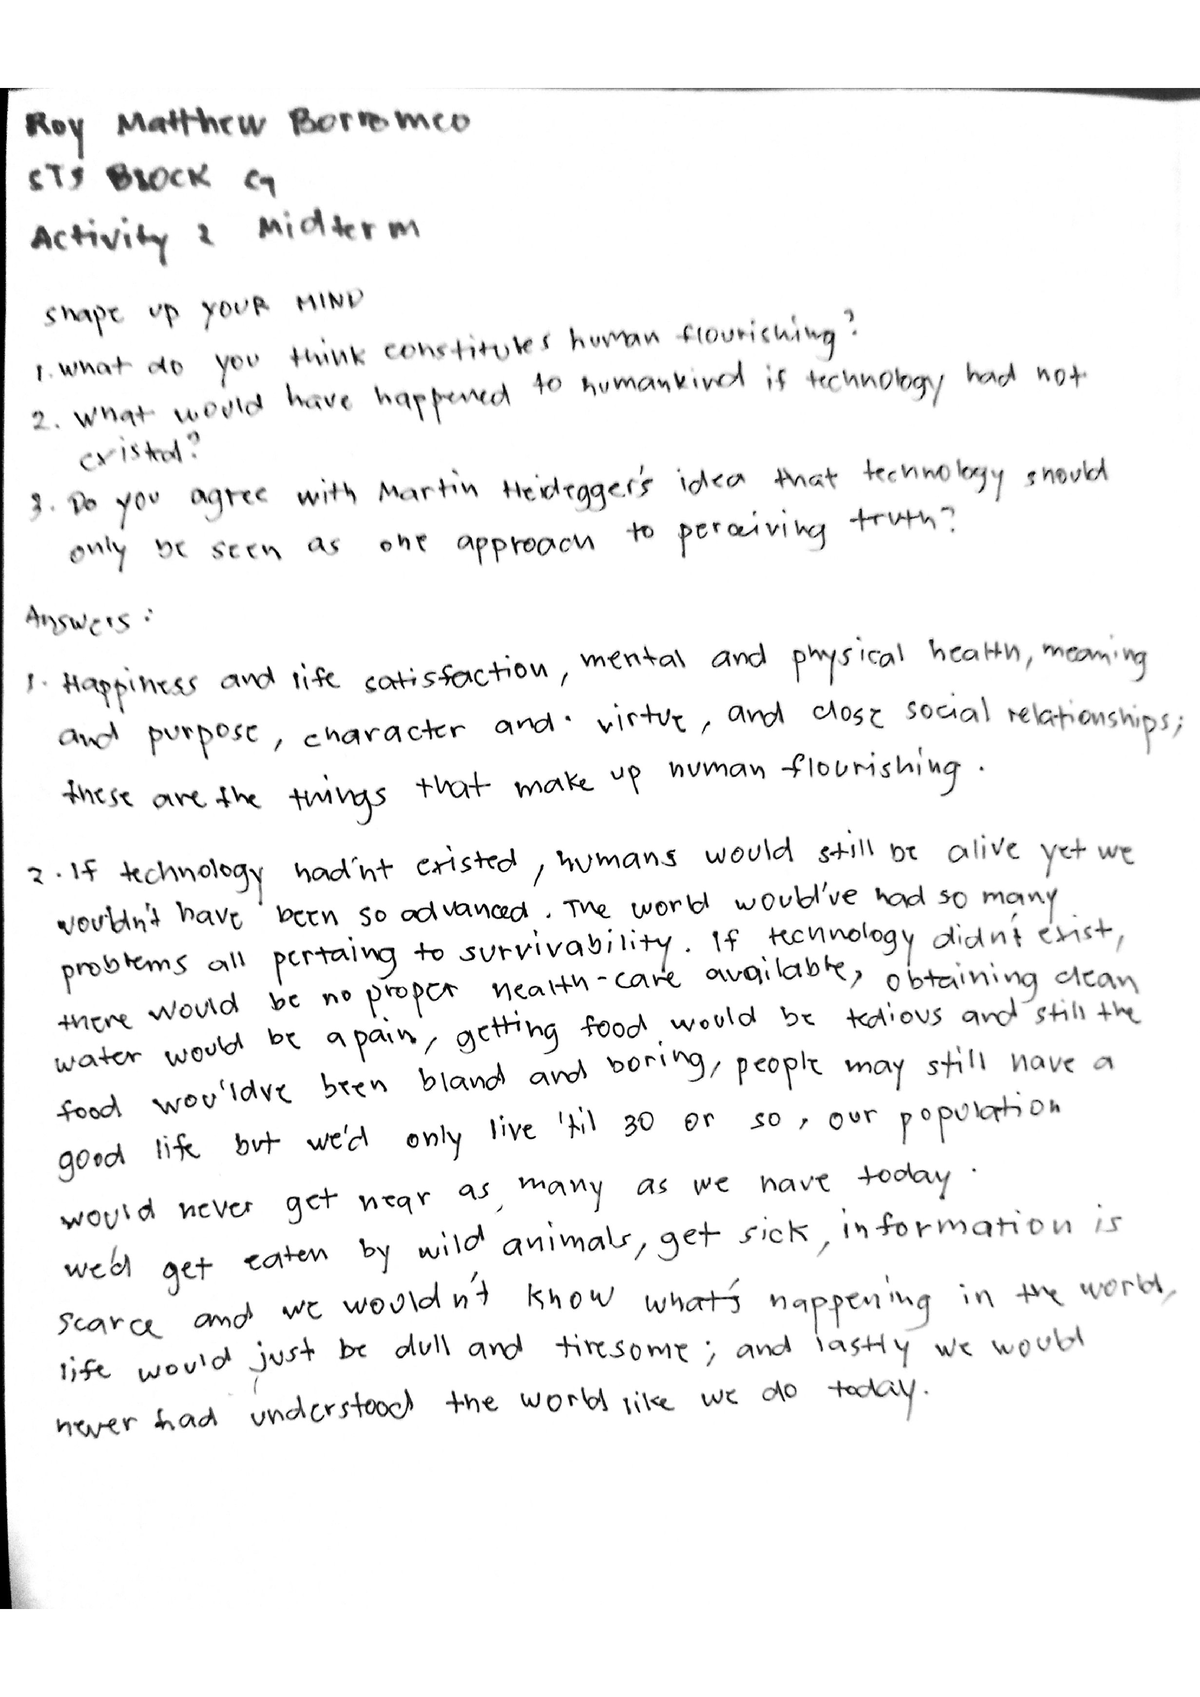 Roy Matthew Borromeo
STS BLOCK
Activity 2 Midterm
Shape up YOUR MIND
1. What do you think constitutes human flourishing?
2. What would have happened to humankind if technology had not
existed?
3. Do you agree with Martin Heidegger's idea that technology should
only be seen as one approach to perceiving truth?
Answers:
1. Happiness and life satisfaction, mental and physical health, meaning
and purpose, character and virtue, and close social relationships;
these are the things that make up human flourishing.
2. If technology had'nt existed, humans would still be alive yet we
wouldn't have been so advanced. The world would've had so many
problems all pertaing to survivability. If technology didn't exist,
there would be no proper health-care available, obtaining clean
water would be a pain, getting food would be tedious and still the
food wou'ldve been bland and boring, people may still have a
good life but we'd only live 'til 30 or so, our population
would never get near as many as we have today.
we'd get eaten by wild animals, get sick, information is
scarce and we wouldn't know what's happening in the world,
life would just be dull and tiresome; and lastly we would
never had understood the world like we do today.